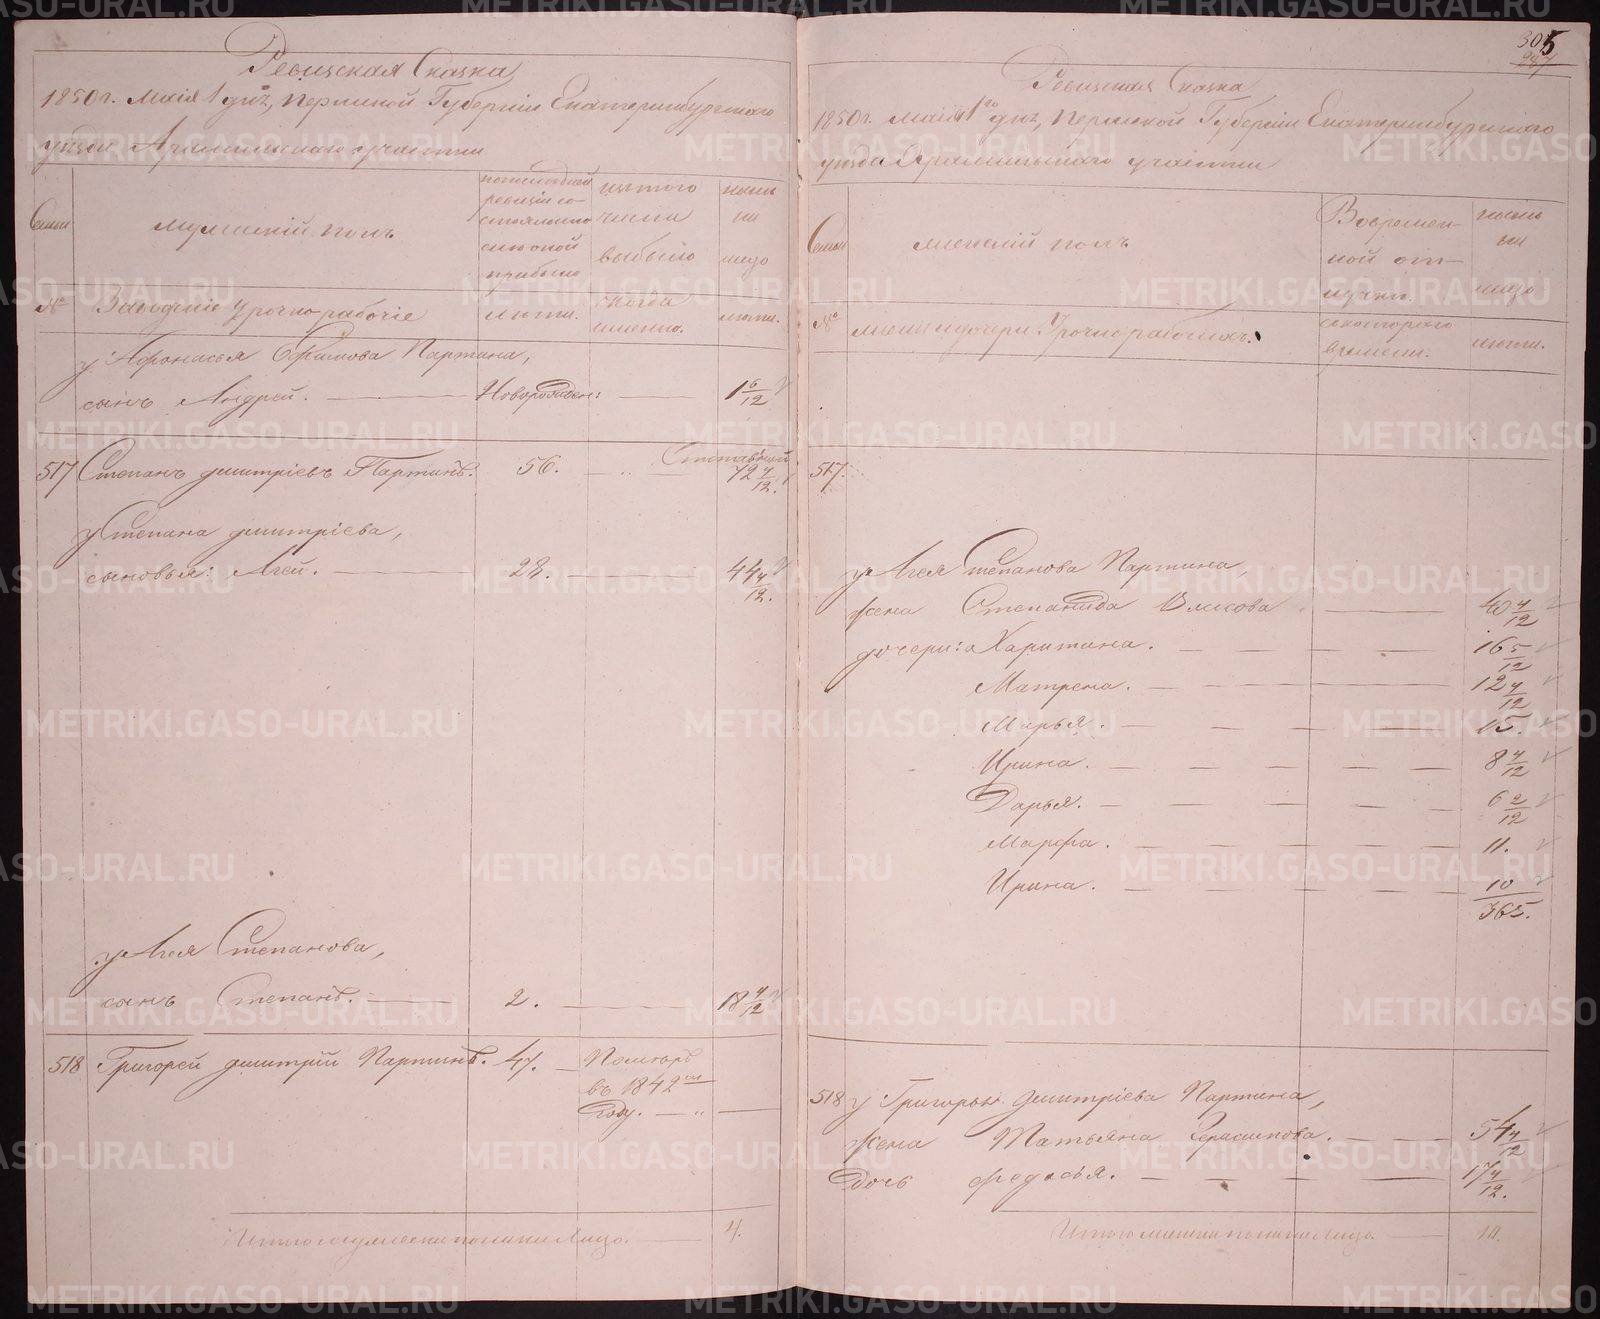 Ревизская Сказка
1850 г. Маія 1 дня, Пермской Губерніи Екатеринбургскаго
уѣзда Арамильскаго участка
Семьи
мужескій полъ
по последней
ревизіи со-
стояло и
после оной
прибыло
изъ того
числа
выбыло
ныне
на
лицо
№
Заводскіе Урочно рабочіе
лета.
Когда
именно.
лета.
у Афонасья Ефимова Партина,
сынъ Андрей. Новорожден: 1 6/12
517 Степанъ Дмитріевъ Партинъ. 56. Отставной 72 4/12.
у Степана Дмитріева,
сыновья: Агей. 28. 44 4/12.
у Агея Степанова,
сынъ Степанъ. 2. 18 4/12
518 Григорей Дмитрій Партинъ. 47. Померъ
въ 1842 м
году.
Итого мужеска пола на Лицо. 4.
305
Ревизская Сказка
1850 г. Маія 1го дня, Пермской Губерніи Екатеринбургскаго
уѣзда Арамильскаго участка
Семьи
женскій полъ
Во времен-
ной от-
лучке.
ныне
на
лицо
№
жены и дочери Урочнорабочихъ.
с котораго
времени.
лета.
517.
у Агея Степанова Партина,
жена Степанида Власова 40 4/12
дочери: Харитина. 16 5/12
Матрена. 12 4/12
Марья. 15.
Ирина. 8 4/12
Дарья. 6 2/12
Марфа. 11.
Ирина. 10/365.
518 у Григорья Дмитріева Партина,
жена Татьяна Герасимова. 54 4/12
дочь Федосья. 17 4/12.
Итого женска пола на Лицо. 10.
METRIKI.GASO-URAL.RU